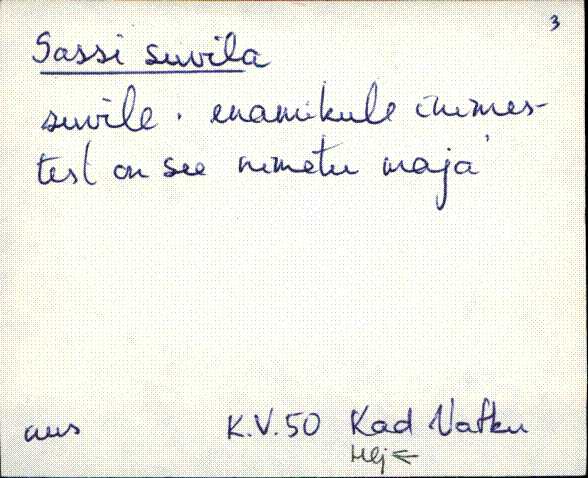 3
Sassi suvila
suvile. enamikule inimes-
test on see nimetu maja
aus K.V.50 Kad Vatku
Hlj ←